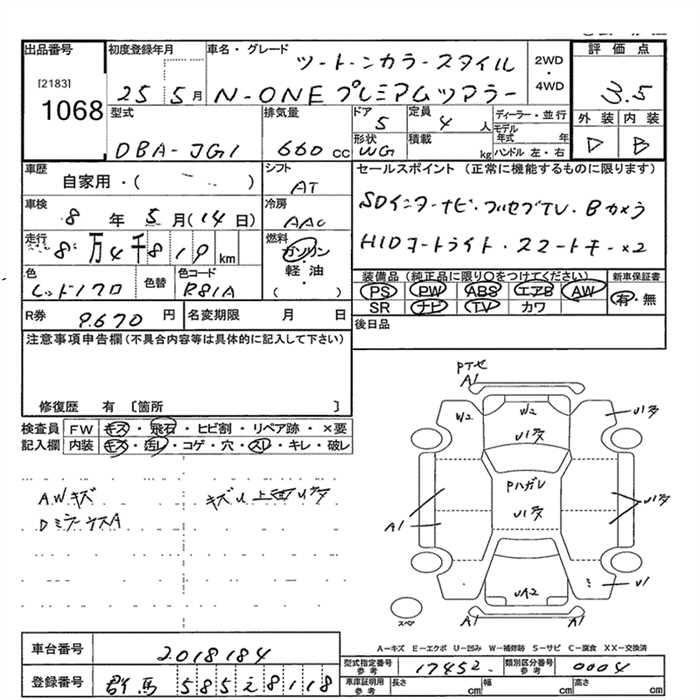 出品番号
[2183]
1068
初度登録年月
25 5月
車名・グレード
ツートーンカラースタイル
N-ONE プレミアムツアラー
2WD
・
4WD
評価点
3.5
外装 内装
D B
型式
DBA-JG1
排気量
660 cc
ドア
5
定員
4 人
形状
WG
積載
kg
ディーラー・並行
モデル年式 年
ハンドル 左・右
車歴
自家用・( )
シフト
AT
車検
8 年 5 月(14日)
冷房
AAC
走行
8万4千819 km
燃料
ガソリン
・
軽油
( )
色
レッド/クロ
色替
色コード
R81A
R券
9,670 円
名変期限 月 日
セールスポイント(正常に機能するものに限ります)
SDインターナビ・フルセグTV・Bカメラ
HIDヘッドライト・スマートキー×2
装備品(純正品に限り○をつけてください)
PS PW ABS エアB AW
SR ナビ TV カワ
新車保証書
有・無
後日品
注意事項申告欄(不具合内容等は具体的に記入して下さい)
修復歴 有〔箇所 〕
検査員記入欄
FW キズ・飛石・ヒビ割・リペア跡・×要
内装 キズ・汚レ・コゲ・穴・スレ・キレ・破レ
AWキズ
キズU上面Uアタ
DミラーキズA
PTセ
A1
W2
W2
U1アタ
U1アタ
Pハガレ
U1アタ
A1
U1アタ
UA2
U1
A1
A1
スペア
A-キズ E-エクボ U-凹み W-補修跡 S-サビ C-腐食 XX-交換済
車台番号
2018184
登録番号
群馬 585 え 8118
型式指定番号
参考
17452
類別区分番号
参考
0004
車庫証明用
参考
長さ cm
幅 cm
高さ cm